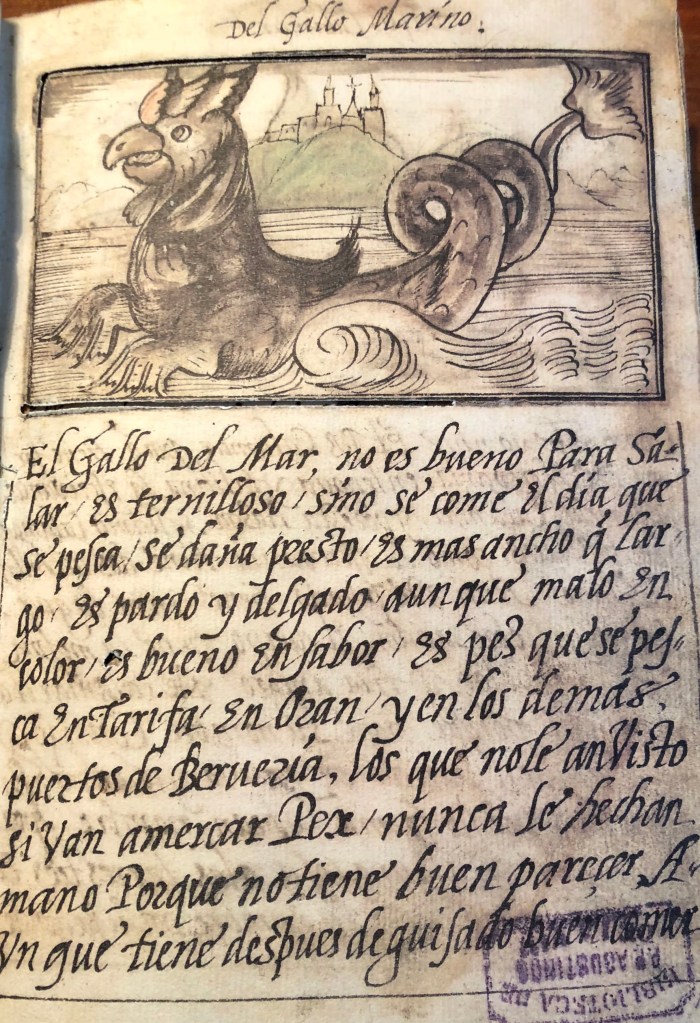 Del Gallo Marino.
El Gallo Del Mar, no es bueno Para Sa-
lar / es ternilloso / sino se come el dia que
se pesca / se daña presto / es mas ancho q̃ lar-
go / es pardo y delgado / aunque malo en
color / es bueno en sabor / es pez que se pes-
ca en Tarifa / en Oran / y en los demas
puertos de Berueria, los que no le an Visto
si Van amercar Pex / nunca le hechan
mano Porque no tiene buen pareçer, A-
Vnque tiene despues de guisado buen comer
BIBLIOTECA DE
PP. AGUSTINOS